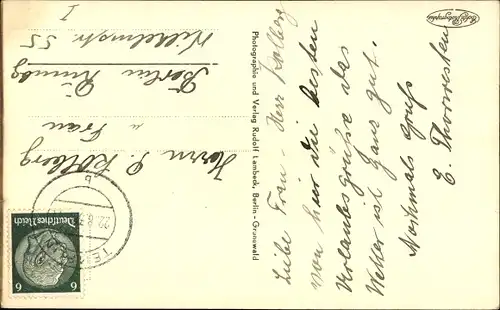 Liebe Frau - Herr Kolberg
von hier die besten
Urlaubsgrüße das
Wetter ist ganz gut.
Nochmals Gruß
E. Thorwesten
Photographie und Verlag Rudolf Lambeck, Berlin-Grunewald
Herrn P. Kolberg
u Frau
Berlin
Wilhelmstr 55
I
Deutsches Reich
6 6
22.8.3
b